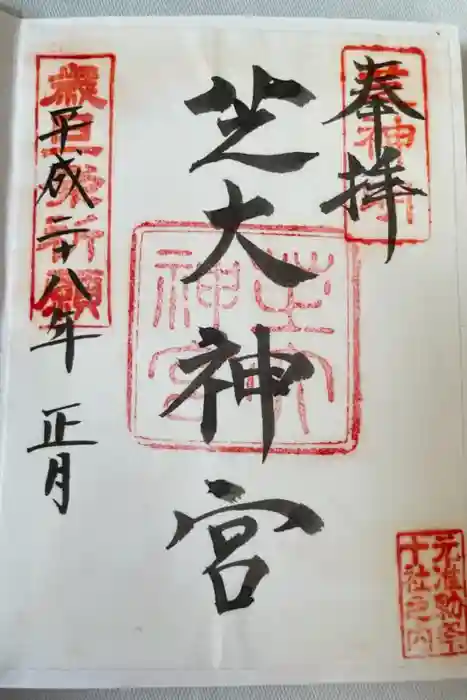 奉拝
芝大神宮
芝大
神宮
歳旦祭祈願
平成二十八年 正月
元准勅祭
十社之内